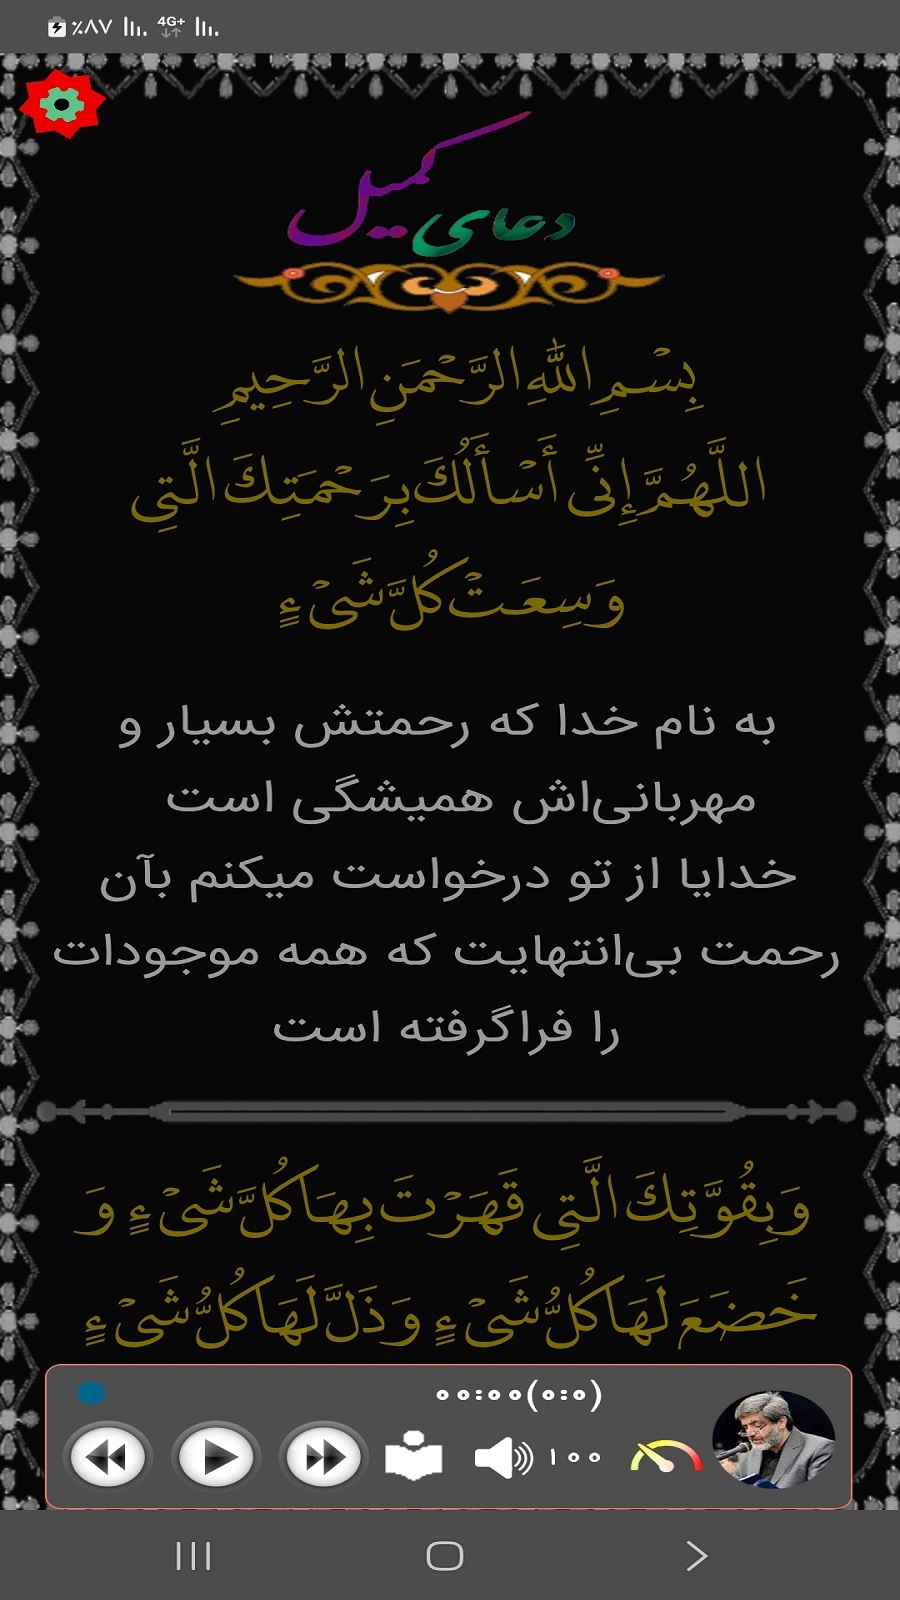 ٪۸۷ 4G+
دعای کمیل
بِسْمِ اللَّهِ الرَّحْمَنِ الرَّحِيمِ
اللَّهُمَّ إِنِّي أَسْأَلُكَ بِرَحْمَتِكَ الَّتِي
وَسِعَتْ كُلَّ شَيْءٍ
به نام خدا که رحمتش بسیار و
مهربانی‌اش همیشگی است
خدایا از تو درخواست میکنم بآن
رحمت بی‌انتهایت که همه موجودات
را فراگرفته است
وَ بِقُوَّتِكَ الَّتِي قَهَرْتَ بِهَا كُلَّ شَيْءٍ وَ
خَضَعَ لَهَا كُلُّ شَيْءٍ وَ ذَلَّ لَهَا كُلُّ شَيْءٍ
۰۰:۰۰(۰:۰)
۱۰۰